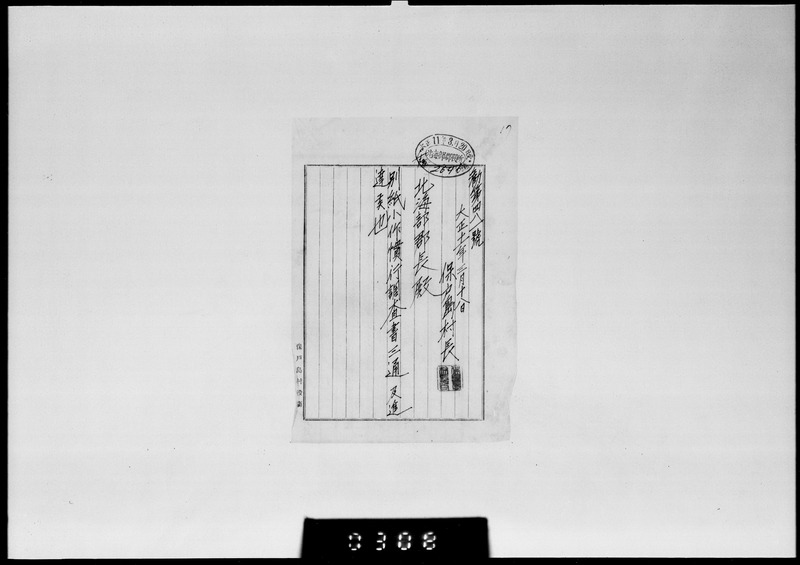 勧第四八一號
大正十一年三月十八日
保戸島村長
北海部郡長殿
別紙小作慣行調査書三通及進
達候也
保戸島村役場
17
11 3 30
0308